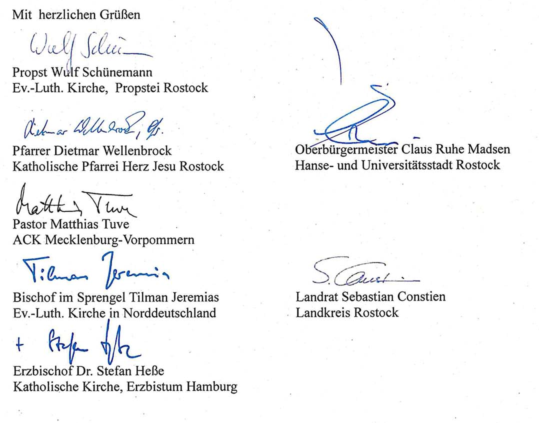 Mit herzlichen Grüßen
Wulf Schün
Propst Wulf Schünemann
Ev.-Luth. Kirche, Propstei Rostock
Dietmar Wellenbrock, Pfr.
Pfarrer Dietmar Wellenbrock
Katholische Pfarrei Herz Jesu Rostock
Matthias Tuve
Pastor Matthias Tuve
ACK Mecklenburg-Vorpommern
Tilman Jeremias
Bischof im Sprengel Tilman Jeremias
Ev.-Luth. Kirche in Norddeutschland
+ Stefan Heße
Erzbischof Dr. Stefan Heße
Katholische Kirche, Erzbistum Hamburg
Oberbürgermeister Claus Ruhe Madsen
Hanse- und Universitätsstadt Rostock
S. Const
Landrat Sebastian Constien
Landkreis Rostock